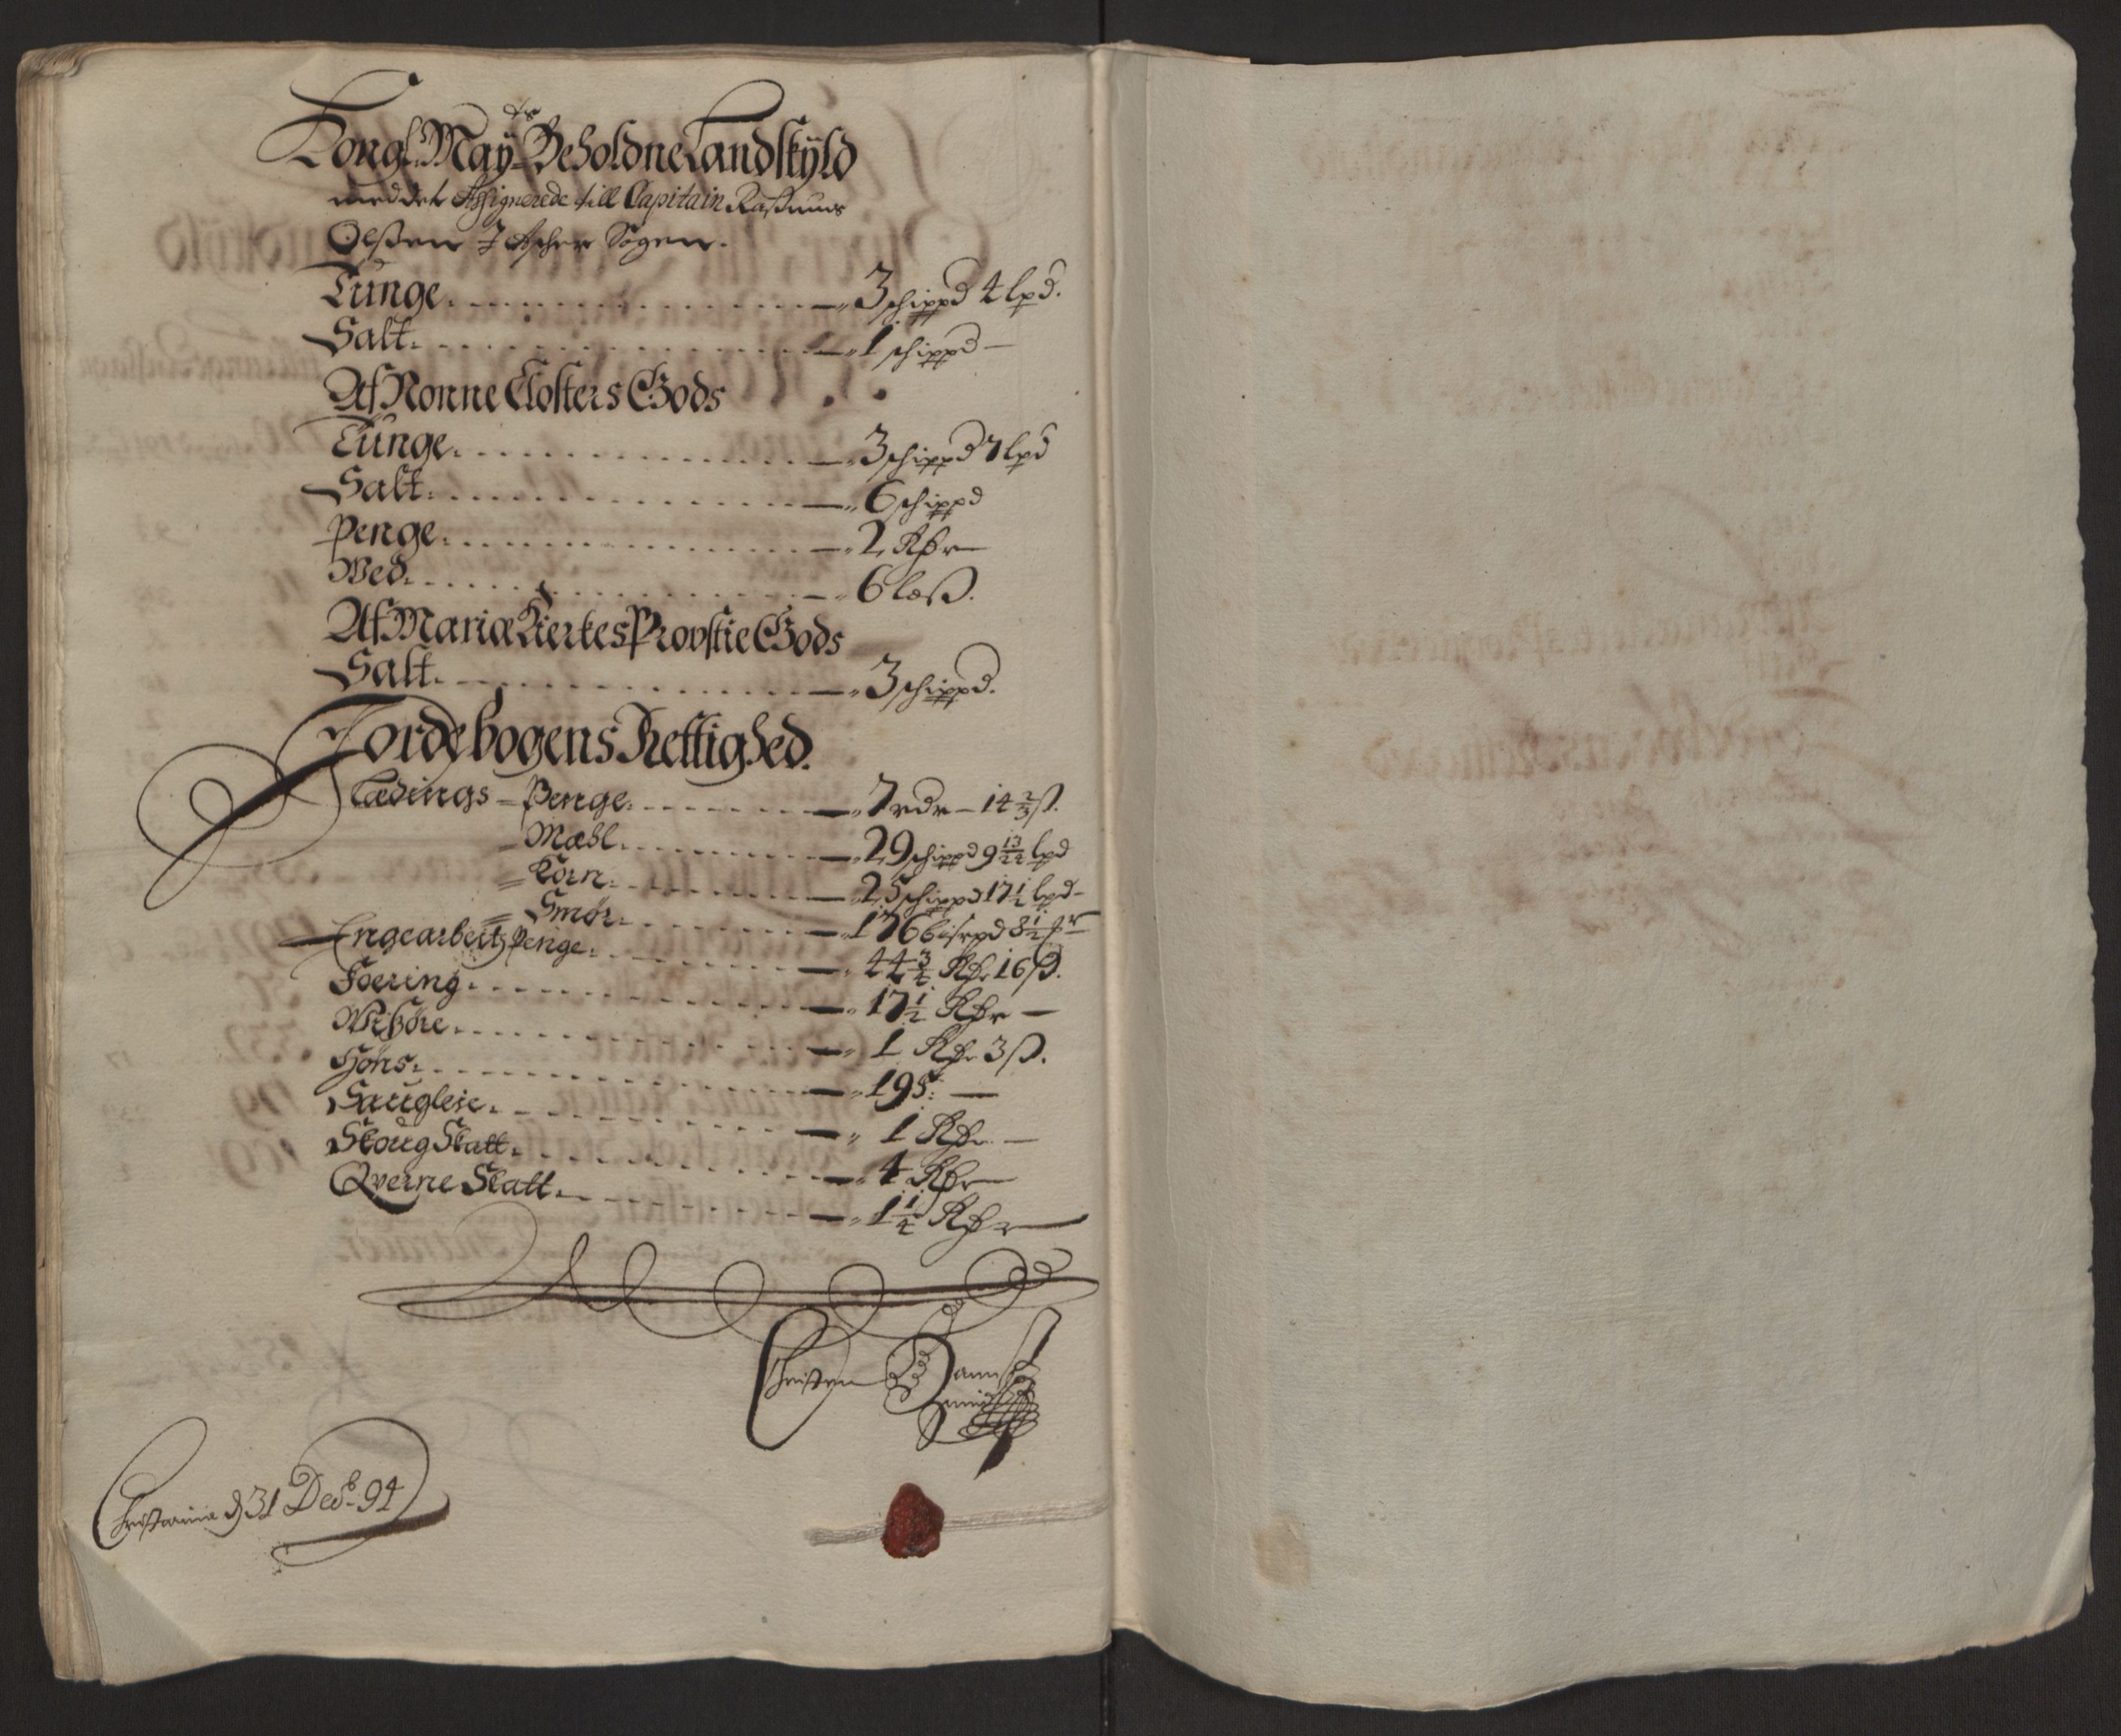 Kongl: May.ts Beholdne Landskÿld
med det Assignerede till Capitain Rasmus
Olßen I Ascher Sogen.
Tunge. — 3 schippd 4 lpd.
Salt. — 1 schippd —
Af Nonne Closters Gods
Tunge. — 3 schippd 7 lpd
Salt. — 6 schippd
Penge. — 2 Rdr
Wed. — 6 læss.
Af Mariæ Kierkes Provstie Gods
Salt. — 3 schippd.
Jordebogens Rettighed.
Lædings = Penge. — 7 rdr — 14 2/3 ß.
= Mæhl. — 29 schippd 9 13/24 lpd
= Korn. — 25 schippd 17 1/2 lpd —
= Smör. — 176 bisrpd 8 1/2 mr
Engearbeitz Penge. — 44 3/4 Rdr 16 ß.
Foering. — 17 1/2 Rdr —
Wisöre. — 1 Rdr 3 ß.
Höns. — 195: —
Saugleie. — 1 Rdr —
Skoug Skatt. — 4 Rdr
Qverne Skatt. — 1 1/4 Rdr
Christen
Christania d 31 Decb. 94